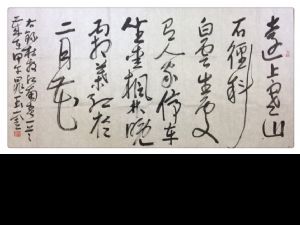 遠上寒山
石徑斜
白雲生處
有人家停車
坐愛楓林晚
霜葉紅於
二月花
杜牧
甲午